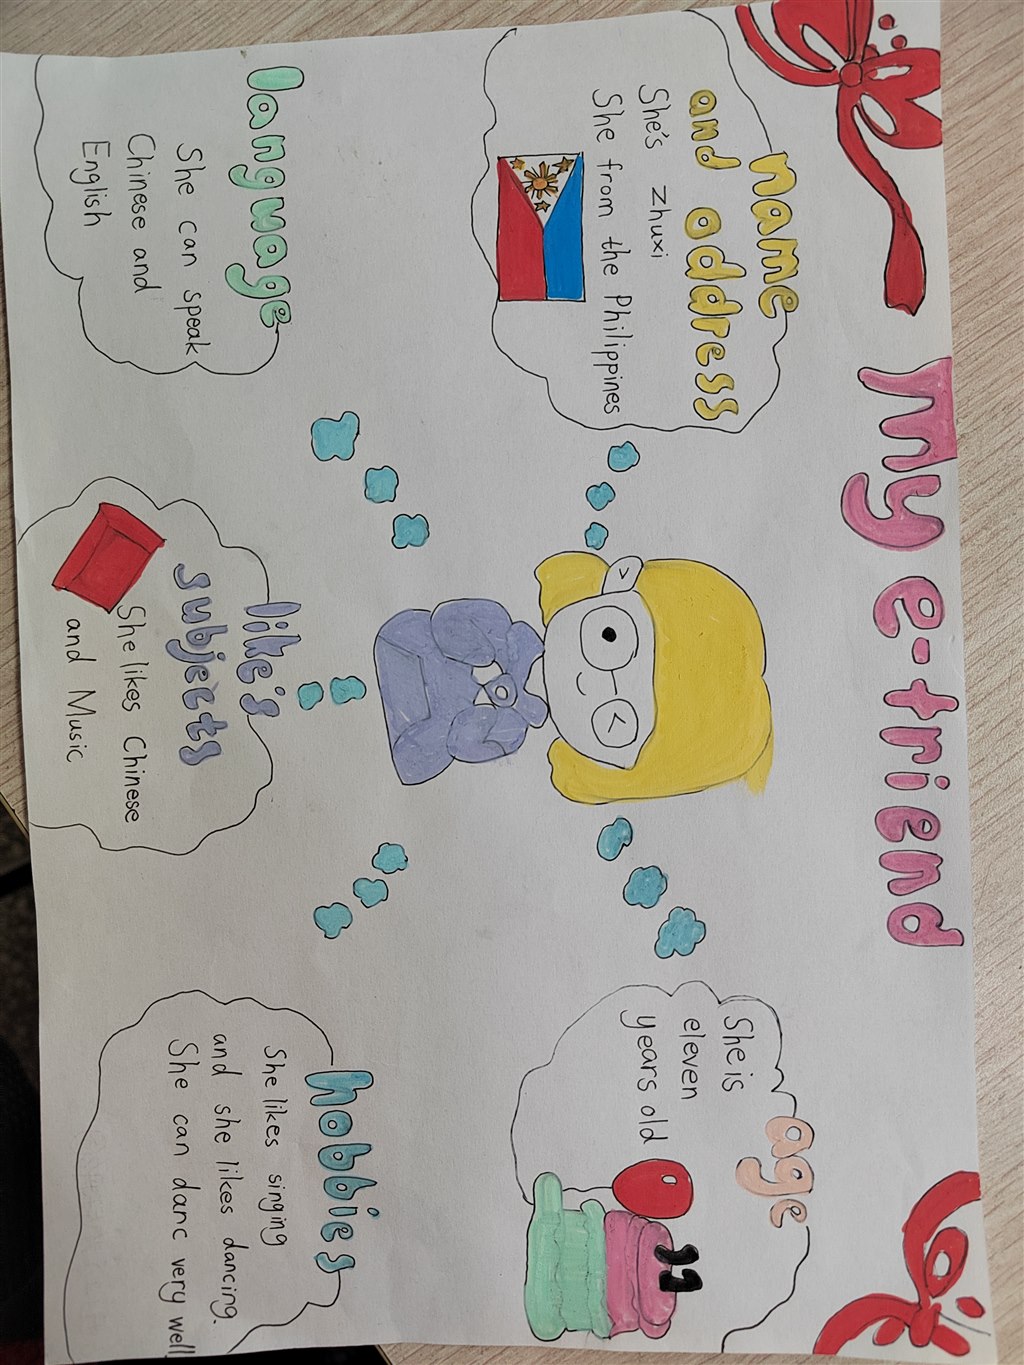 My e-friend
name
and address
She's zhuxi
She from the Philippines
age
She is
eleven
years old
11
language
She can speak
Chinese and
English
like's
subjects
She likes Chinese
and Music
hobbies
She likes singing
and she likes dancing.
She can danc very well